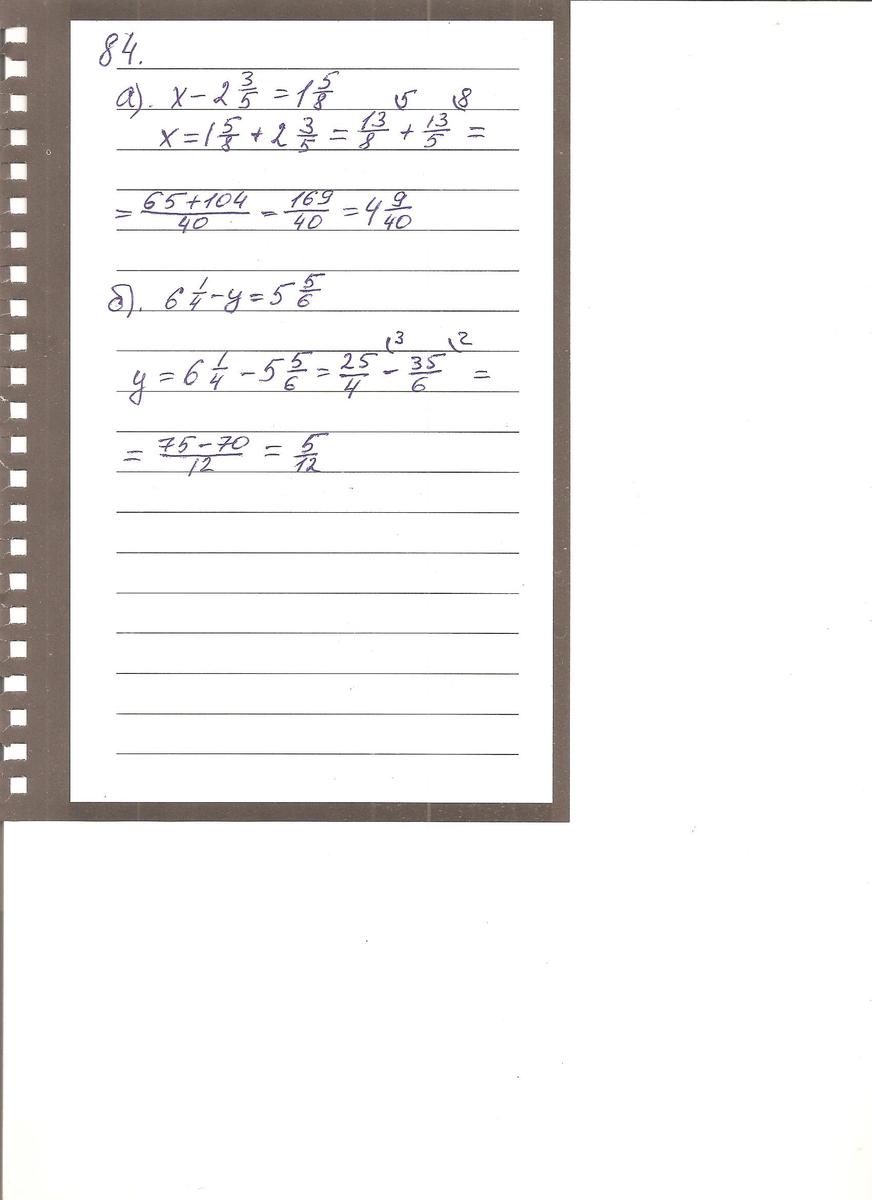 84.
а). x − 2 3/5 = 1 5/8
x = 1 5/8 + 2 3/5 = 13/8 ⁵ + 13/5 ⁸ =
= (65+104)/40 = 169/40 = 4 9/40
б). 6 1/4 − y = 5 5/6
y = 6 1/4 − 5 5/6 = 25/4 ³ − 35/6 ² =
= (75−70)/12 = 5/12